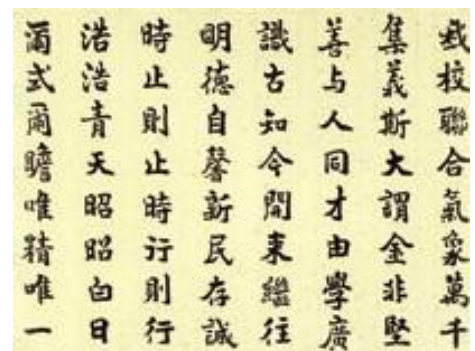 我校聯合氣象萬千
集義斯大謂金非堅
善与人同才由學廣
識古知今開來繼往
明德自馨新民存誠
時止則止時行則行
浩浩青天昭昭白日
爾式爾瞻唯精唯一